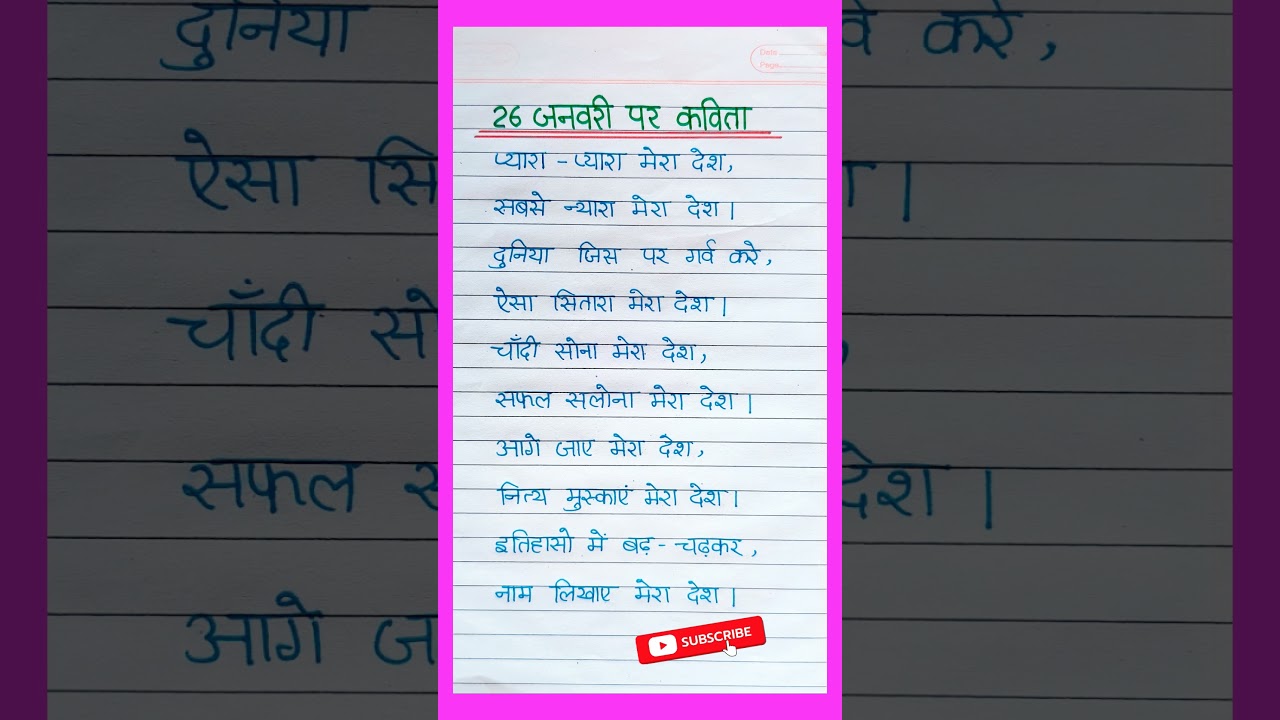 Date
Page
26 जनवरी पर कविता
प्यारा - प्यारा मेरा देश,
सबसे न्यारा मेरा देश।
दुनिया जिस पर गर्व करे,
ऐसा सितारा मेरा देश।
चाँदी सोना मेरा देश,
सफल सलोना मेरा देश।
आगे जाए मेरा देश,
नित्य मुस्काएं मेरा देश।
इतिहासो में बढ़ - चढ़कर,
नाम लिखाए मेरा देश।
SUBSCRIBE